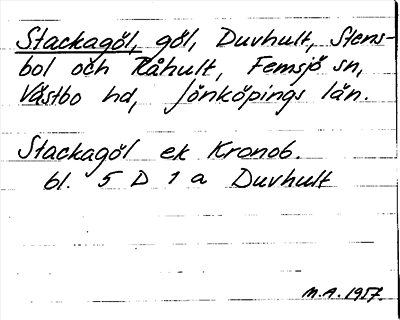 Stackagöl, göl, Duvhult, Stens-
bol och Råhult, Femsjö sn,
Västbo hd, Jönköpings län.
Stackagöl ek Kronob.
bl. 5 D 1 a Duvhult
M.A. 1957.